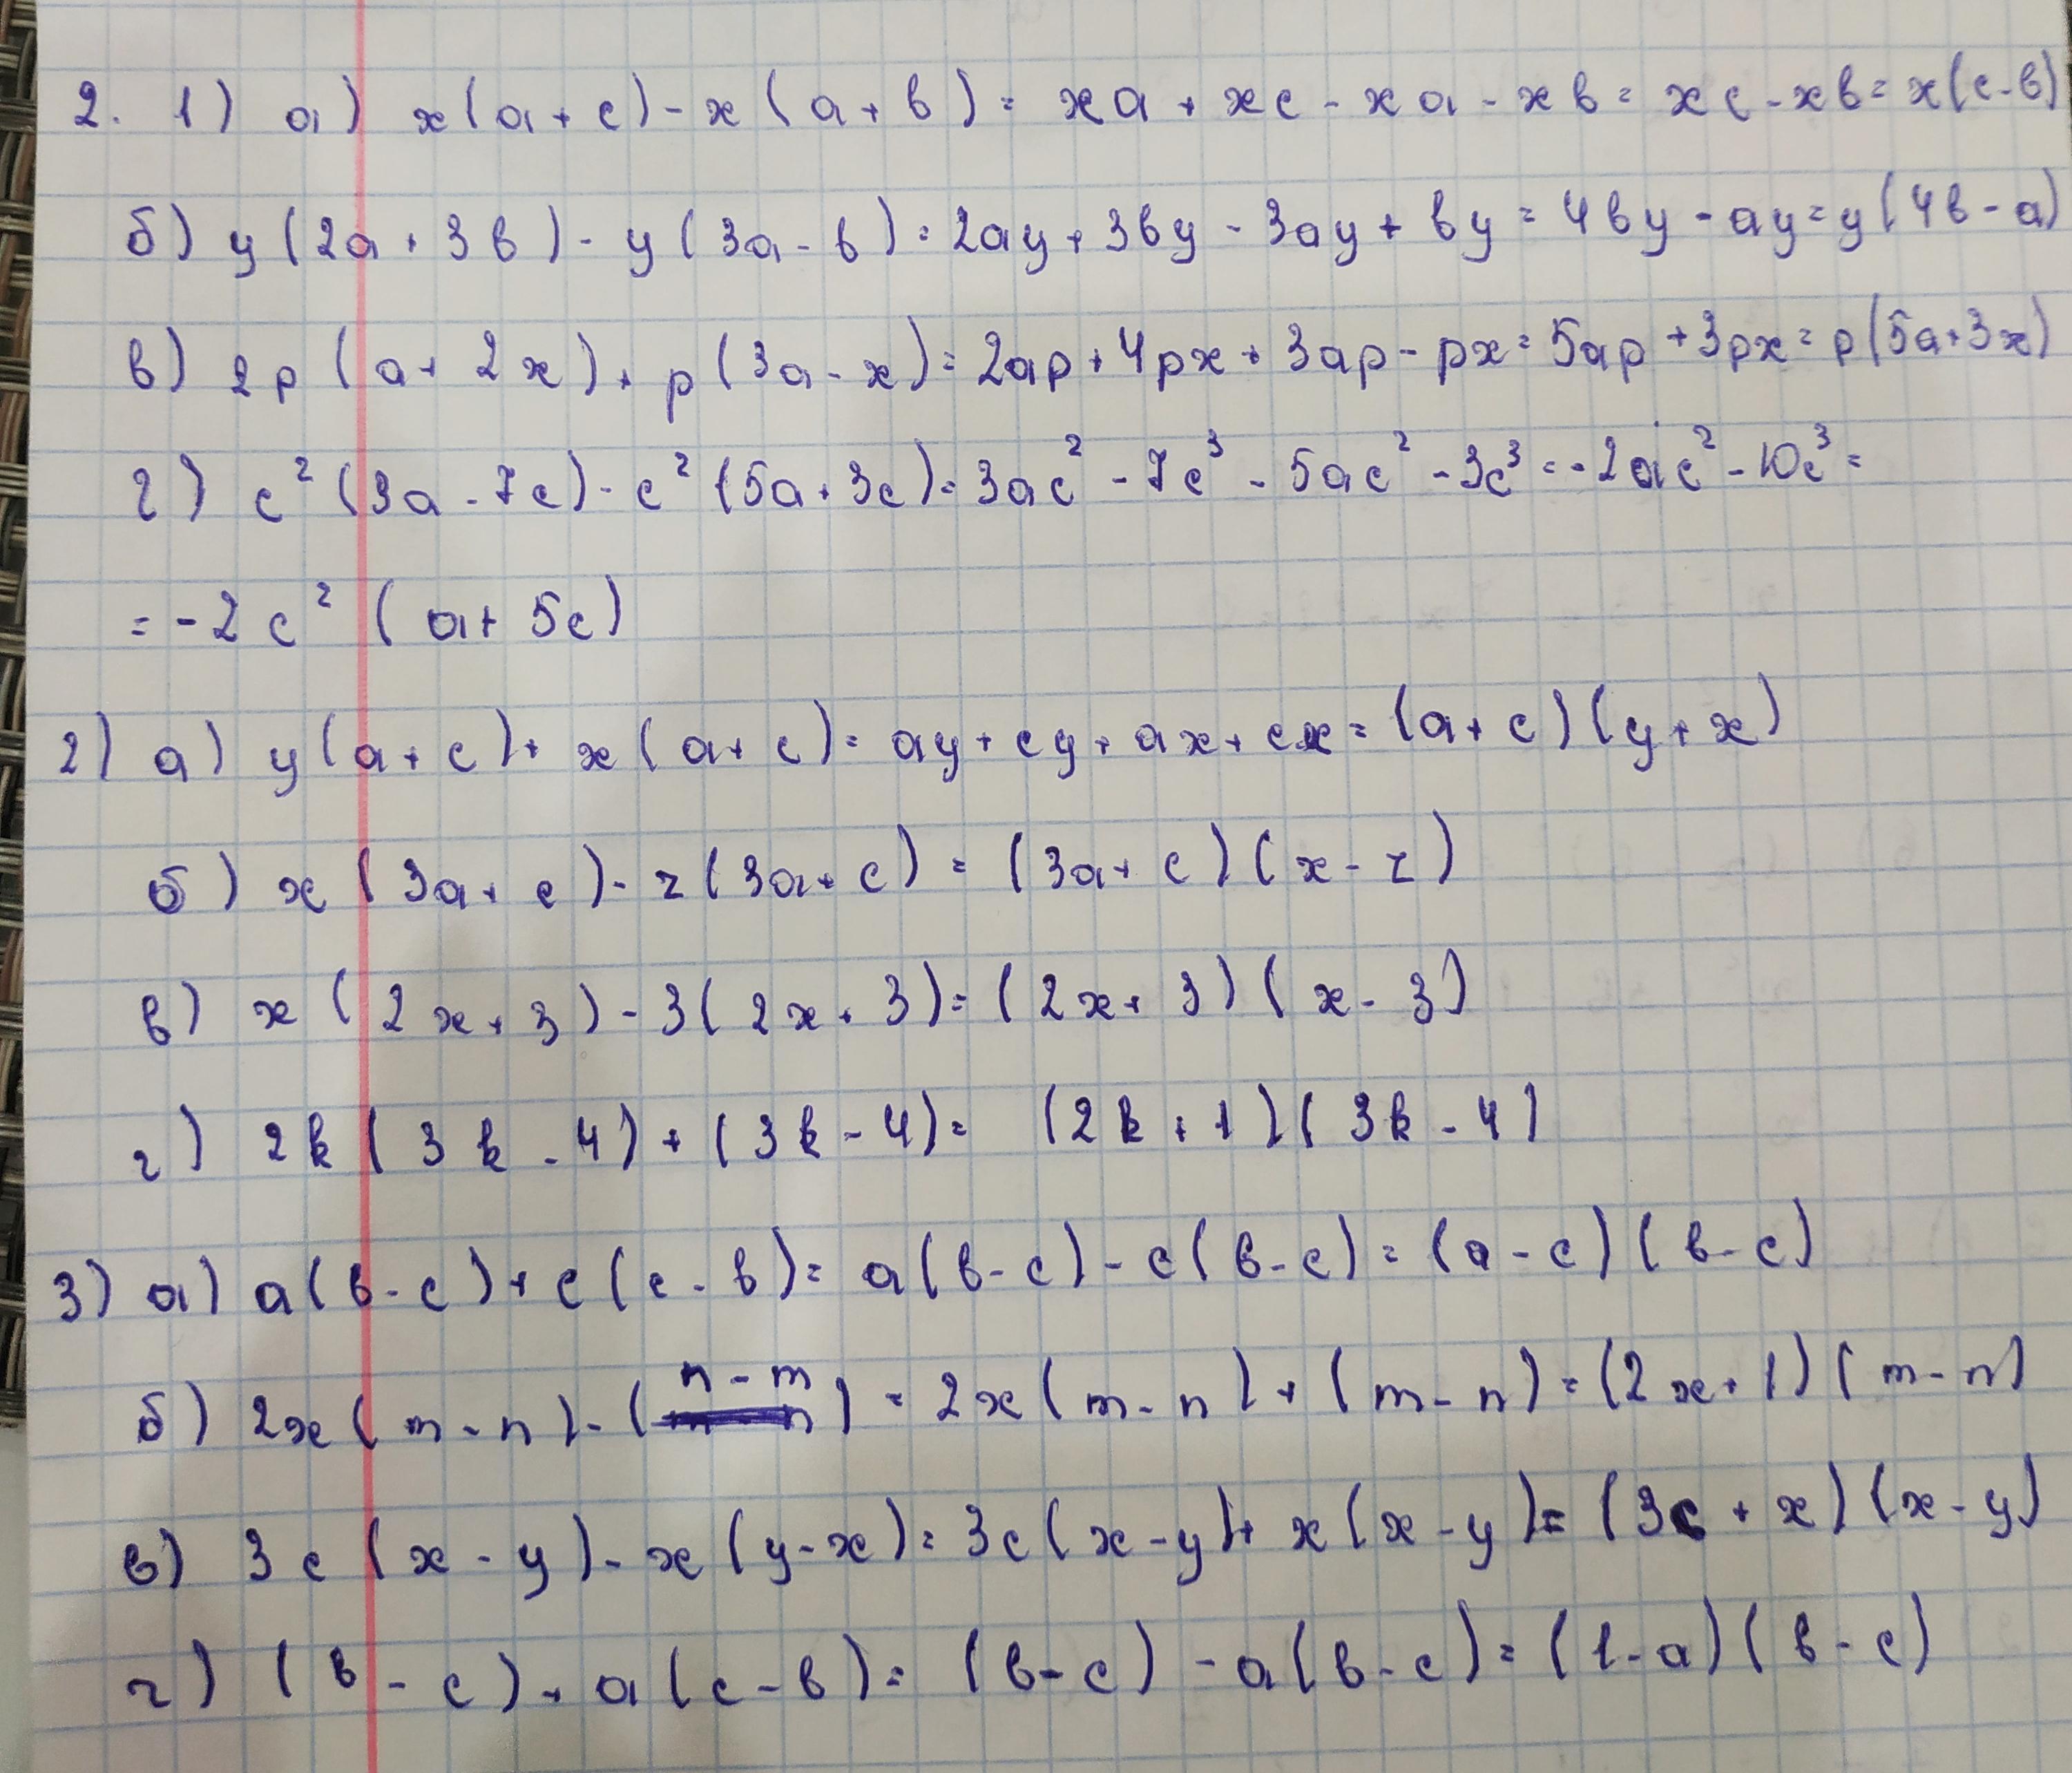 2. 1) а) x(a+c)-x(a+b)= xa+xc-xa-xb= xc-xb= x(c-b)
б) y(2a+3b)-y(3a-b)=2ay+3by-3ay+by=4by-ay=y(4b-a)
в) 2p(a+2x)+p(3a-x)=2ap+4px+3ap-px=5ap+3px=p(5a+3x)
г) c²(3a-7c)-c²(5a+3c)=3ac²-7c³-5ac²-3c³=-2ac²-10c³=
=-2c²(a+5c)
2) а) y(a+c)+x(a+c)=ay+cy+ax+cx=(a+c)(y+x)
б) x(3a+c)-z(3a+c)=(3a+c)(x-z)
в) x(2x+3)-3(2x+3)=(2x+3)(x-3)
г) 2k(3k-4)+(3k-4)= (2k+1)(3k-4)
3) а) a(b-c)+c(c-b)= a(b-c)-c(b-c)=(a-c)(b-c)
б) 2x(m-n)-(n-m)=2x(m-n)+(m-n)=(2x+1)(m-n)
в) 3c(x-y)-x(y-x)=3c(x-y)+x(x-y)=(3c+x)(x-y)
г) (b-c)+a(c-b)=(b-c)-a(b-c)=(1-a)(b-c)